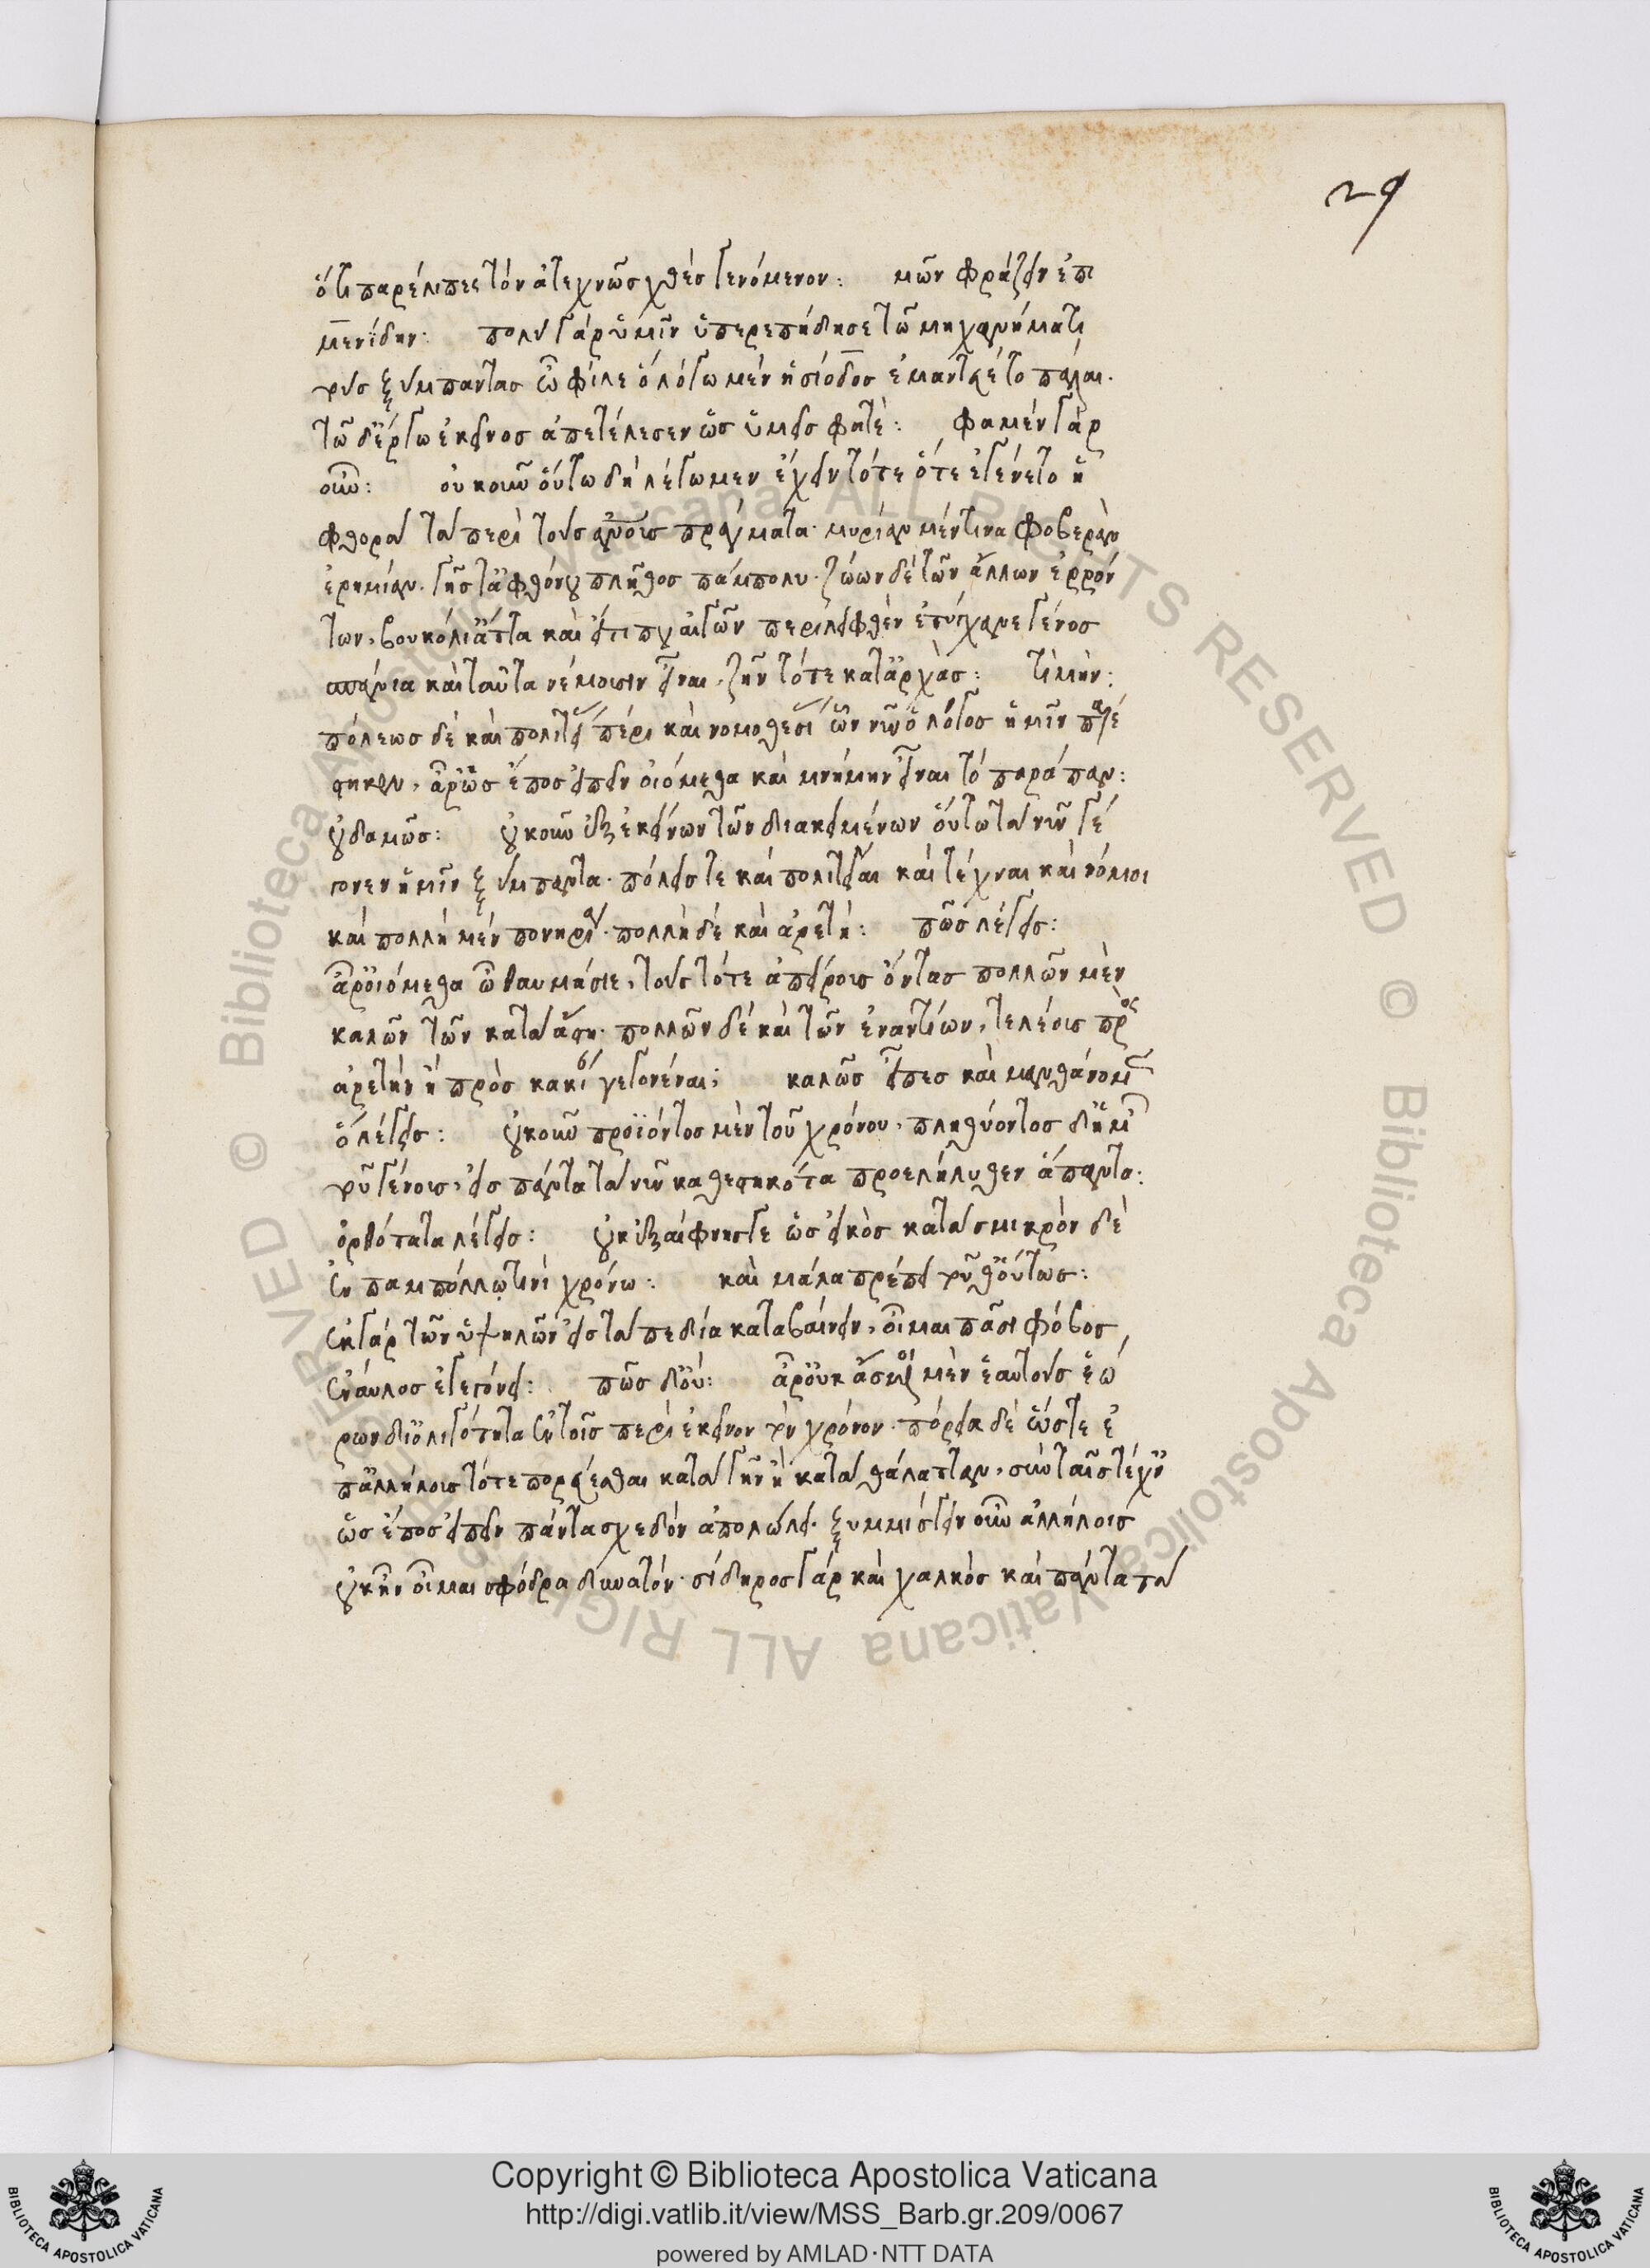 29
ὅτι παρέλιπες τὸν ἀτεχνῶς χθὲς γενόμενον: μῶν φράζειν ἐπι
μενίδην: πολὺ γὰρ ὑμῖν ὑπερεπήδησε τῶ μηχανήματι
τοὺς ξύμπαντας ὦ φίλε ὃ λόγω μὲν ἡσίοδος ἐμαντεύετο πάλαι.
τῶ δὲ ἔργω ἐκεῖνος ἀπετέλεσεν ὡς ὑμεῖς φατὲ: φαμὲν γὰρ
οὖν: οὐκοῦν οὕτω δὴ λέγωμεν ἔχειν τότε ὅτε ἐγένετο ἡ
φθορὰ τὰ περὶ τοὺς ἀνθρώπους πράγματα· μυρίαν μέν τινα φοβερὰν
ἐρημίαν. γῆς τ' ἀφθόνου πλῆθος πάμπολυ. ζώων δὲ τῶν ἄλλων ἐρρόν
των, βουκόλι' ἄττα καὶ εἴ τί που αἰγῶν περιλειφθὲν ἐτύγχανε γένος
σπάνια καὶ ταῦτα νέμουσιν εἶναι, ζῆν τότε κατ' ἀρχάς: τί μήν:
πόλεως δὲ καὶ πολιτείας πέρι καὶ νομοθεσίας ὧν νῦν ὁ λόγος ἡμῖν παρέ
στηκεν, ἆρ' ὡς ἔπος εἰπεῖν οἰόμεθα καὶ μνήμην εἶναι τὸ παράπαν:
οὐδαμῶς: οὐκοῦν ἐξ ἐκείνων τῶν διακειμένων οὕτω τὰ νῦν γέ
γονεν ἡμῖν ξύμπαντα. πόλεις τε καὶ πολιτεῖαι καὶ τέχναι καὶ νόμοι
καὶ πολλὴ μὲν πονηρία. πολλὴ δὲ καὶ ἀρετή: πῶς λέγεις:
ἆρ' οἰόμεθα ὦ θαυμάσιε, τοὺς τότε ἀπείρους ὄντας πολλῶν μὲν
καλῶν τῶν κατὰ ἄστη. πολλῶν δὲ καὶ τῶν ἐναντίων, τελέους πρὸς
ἀρετὴν ἢ πρὸς κακίαν γεγονέναι; καλῶς εἶπες καὶ μανθάνομεν
ὃ λέγεις: οὐκοῦν προϊόντος μὲν τοῦ χρόνου, πληθύοντος δ' ἡμῶν
τοῦ γένους, εἰς πάντα τὰ νῦν καθεστηκότα προελήλυθεν ἅπαντα:
ὀρθότατα λέγεις: οὐκ ἐξαίφνης γε ὡς εἰκὸς κατὰ σμικρὸν δὲ
ἐν παμπόλλῳ τινὶ χρόνω: καὶ μάλα πρέπει τοῦθ' οὕτως:
ἐκ γὰρ τῶν ὑψηλῶν εἰς τὰ πεδία καταβαίνειν, οἶμαι πᾶσι φόβος
ἔναυλος ἐγεγόνει: πῶς δ' οὔ: ἆρ' οὐκ ἄσμενοι μὲν ἑαυτοὺς ἑώ
ρων δι' ὀλιγότητα ἐν τοῖς περὶ ἐκεῖνον τὸν χρόνον. πορεῖα δὲ ὥστε ἐ
π' ἀλλήλους τότε πορεύεσθαι κατὰ γῆν ἢ κατὰ θάλατταν, σὺν ταῖς τέχναις
ὡς ἔπος εἰπεῖν πάντα σχεδὸν ἀπολώλει. ξυμμίσγειν οὖν ἀλλήλοις
οὐκ ἦν οἶμαι σφόδρα δυνατόν. σίδηρος γὰρ καὶ χαλκὸς καὶ πάντα τὰ
© Biblioteca Apostolica Vaticana ALL RIGHTS RESERVED © Biblioteca Apostolica Vaticana ALL RIGHTS RESERVED
BIBLIOTECA APOSTOLICA VATICANA
Copyright © Biblioteca Apostolica Vaticana
http://digi.vatlib.it/view/MSS_Barb.gr.209/0067
powered by AMLAD·NTT DATA
BIBLIOTECA APOSTOLICA VATICANA